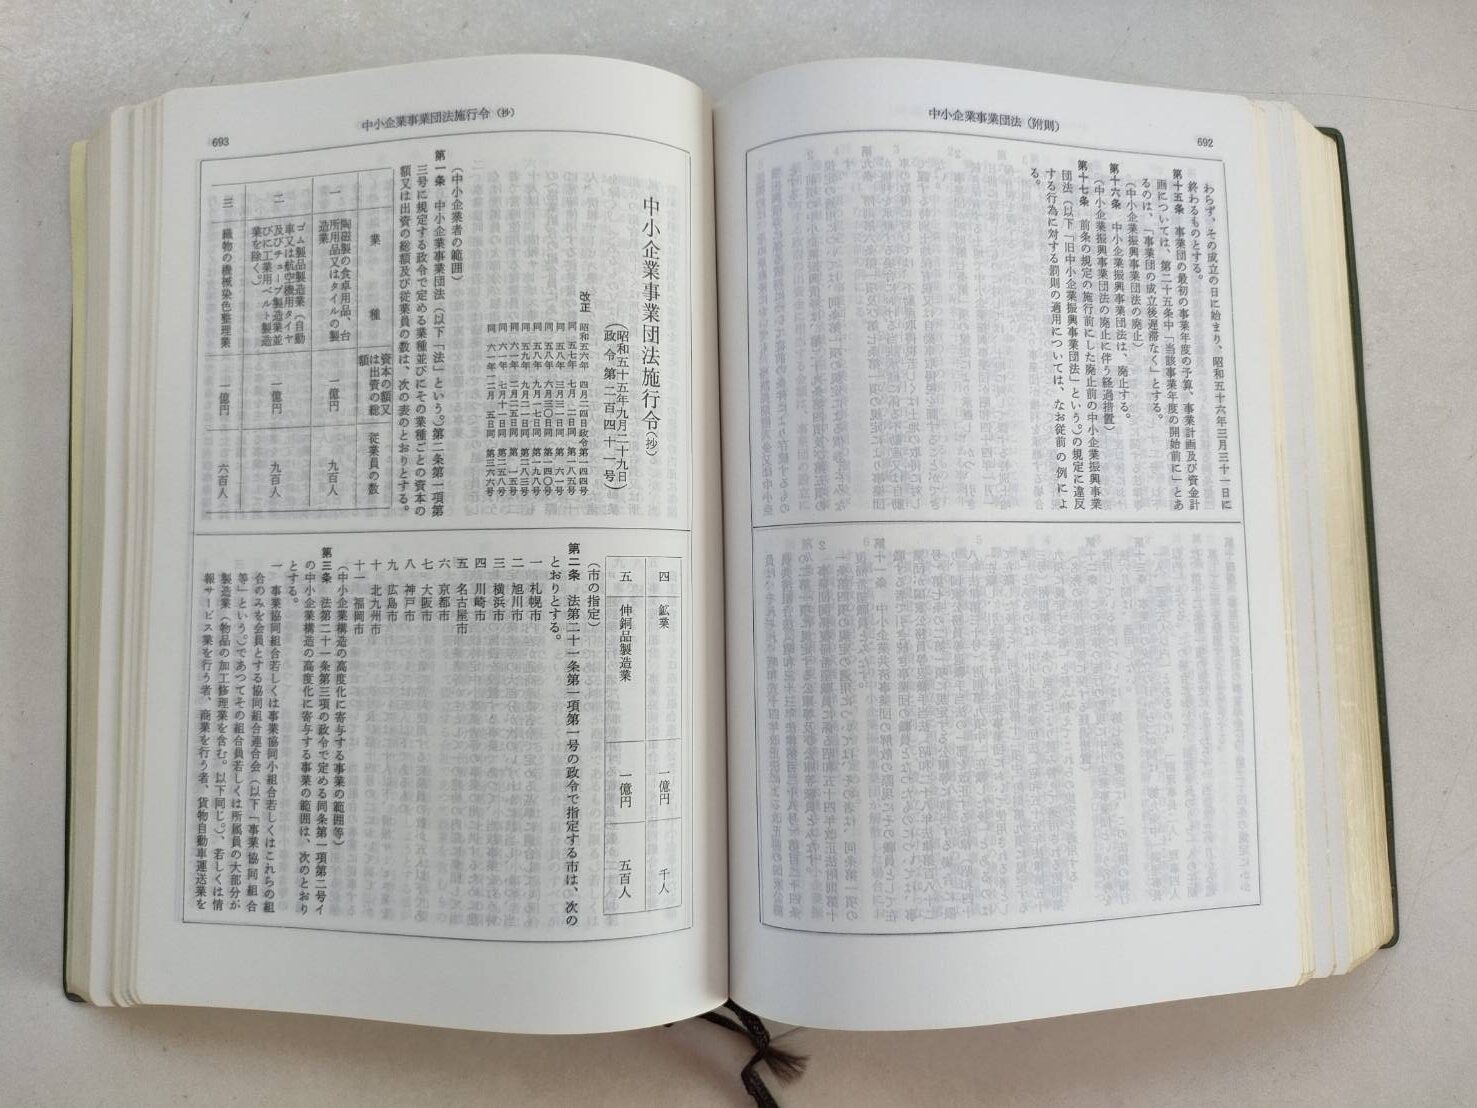 中小企業事業団法(附則)
692
わらず、その成立の日に始まり、昭和五十六年三月三十一日に
終わるものとする。
第十五条 事業団の最初の事業年度の予算、事業計画及び資金計
画については、第二十五条中「当該事業年度の開始前に」とあ
るのは、「事業団の成立後遅滞なく」とする。
(中小企業振興事業団法の廃止)
第十六条 中小企業振興事業団法は、廃止する。
(中小企業振興事業団法の廃止に伴う経過措置)
第十七条 前条の規定の施行前にした廃止前の中小企業振興事業
団法(以下「旧中小企業振興事業団法」という。)の規定に違反
する行為に対する罰則の適用については、なお従前の例によ
る。
中小企業事業団法施行令(抄)
693
中小企業事業団法施行令(抄)
(昭和五十五年九月二十九日
政令第二百四十一号)
改正 昭和五六年 四月二四日政令第一四四号
同 五七年 七月 二日同 第一八五号
同 五八年 三月三一日同 第 六一号
同 五八年 六月三〇日同 第一四〇号
同 五八年 九月一七日同 第一九八号
同 五九年 九月二一日同 第二八三号
同 六一年 二月二五日同 第 一五号
同 六一年 七月一一日同 第二五八号
同 六一年一二月 五日同 第三六六号
(中小企業者の範囲)
第一条 中小企業事業団法(以下「法」という。)第二条第一項第
三号に規定する政令で定める業種並びにその業種ごとの資本の
額又は出資の総額及び従業員の数は、次の表のとおりとする。
業種 資本の額又は出資の総額 従業員の数
一 陶磁製の食卓用品、台所用品又はタイルの製造業 一億円 九百人
二 ゴム製品製造業(自動車又は航空機用タイヤ及びチューブ製造業並びに工業用ベルト製造業を除く。) 一億円 九百人
三 織物の機械染色整理業 一億円 六百人
四 鉱業 一億円 千人
五 伸銅品製造業 一億円 五百人
(市の指定)
第二条 法第二十一条第一項第一号の政令で指定する市は、次の
とおりとする。
一 札幌市
二 旭川市
三 横浜市
四 川崎市
五 名古屋市
六 京都市
七 大阪市
八 神戸市
九 広島市
十 北九州市
十一 福岡市
(中小企業構造の高度化に寄与する事業の範囲等)
第三条 法第二十一条第三項の政令で定める同条第一項第二号イ
の中小企業構造の高度化に寄与する事業の範囲は、次のとおり
とする。
一 事業協同組合若しくは事業協同小組合若しくはこれらの組
合のみを会員とする協同組合連合会(以下「事業協同組合
等」という。)であつてその組合員若しくは所属員の大部分が
製造業(物品の加工修理業を含む。以下同じ。)、若しくは情
報サービス業を行う者、商業を行う者、貨物自動車運送業を